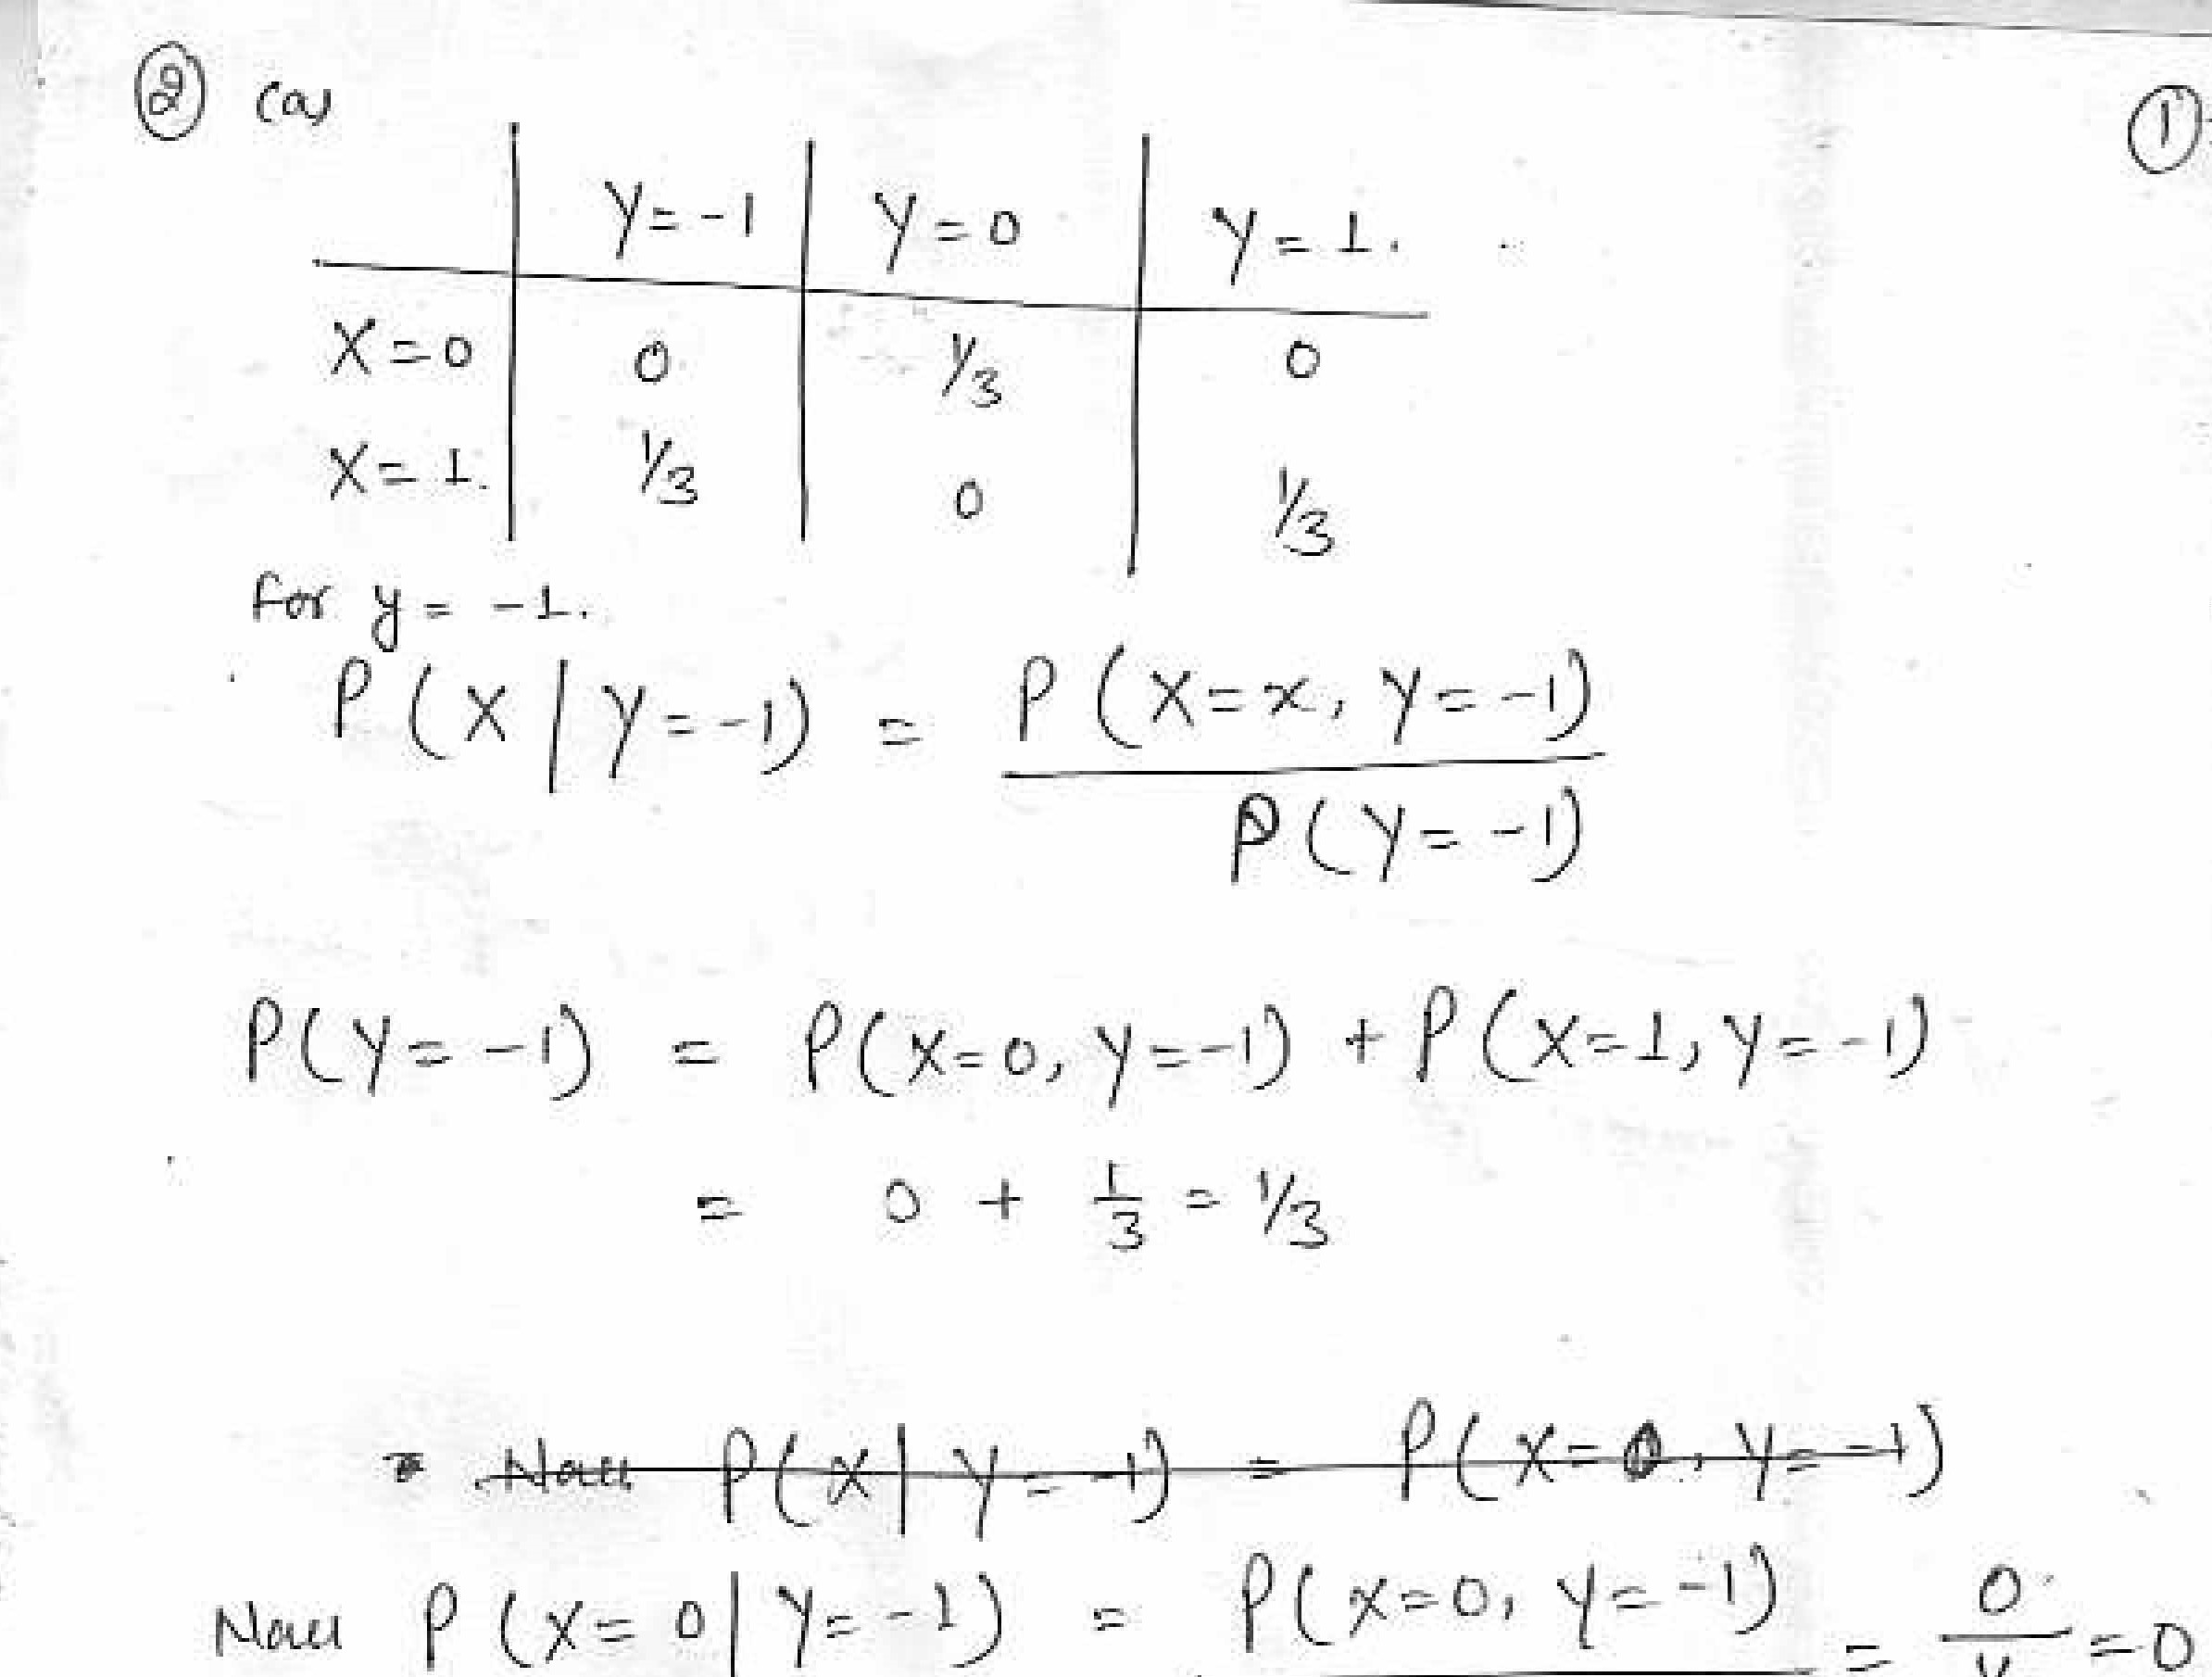 ② (a) ①
Y=-1 Y=0 Y=1.
X=0 0 1/3 0
X=1. 1/3 0 1/3
For y = -1.
P(X | Y=-1) = P(X=x, Y=-1)
P(Y=-1)
P(Y=-1) = P(X=0, Y=-1) + P(X=1, Y=-1)
= 0 + 1/3 = 1/3
= Now P(X | Y=-1) = P(X=0, Y=-1)
Now P(X=0 | Y=-1) = P(X=0, Y=-1) = 0 = 0